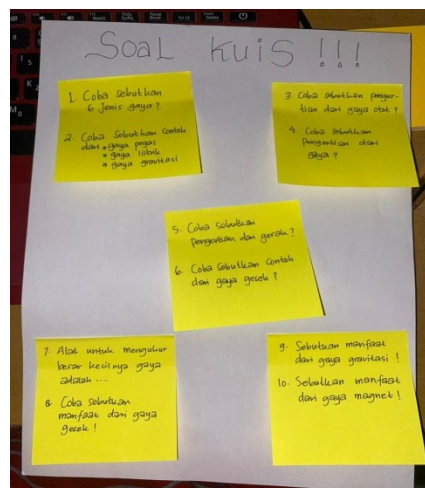 Soal Kuis !!!
1. Coba sebutkan
6 jenis gaya ?
2. Coba sebutkan contoh
dari * gaya pegas
* gaya listrik
* gaya gravitasi
3. Coba sebutkan penger-
tian dari gaya otot ?
4. Coba sebutkan
Pengertian dari
gaya ?
5. Coba sebutkan
Pengertian dari gerak ?
6. Coba sebutkan contoh
dari gaya gesek ?
7. Alat untuk mengukur
besar kecilnya gaya
adalah ....
8. Coba sebutkan
manfaat dari gaya
gesek !
9. Sebutkan manfaat
dari gaya gravitasi !
10. Sebutkan manfaat
dari gaya magnet !